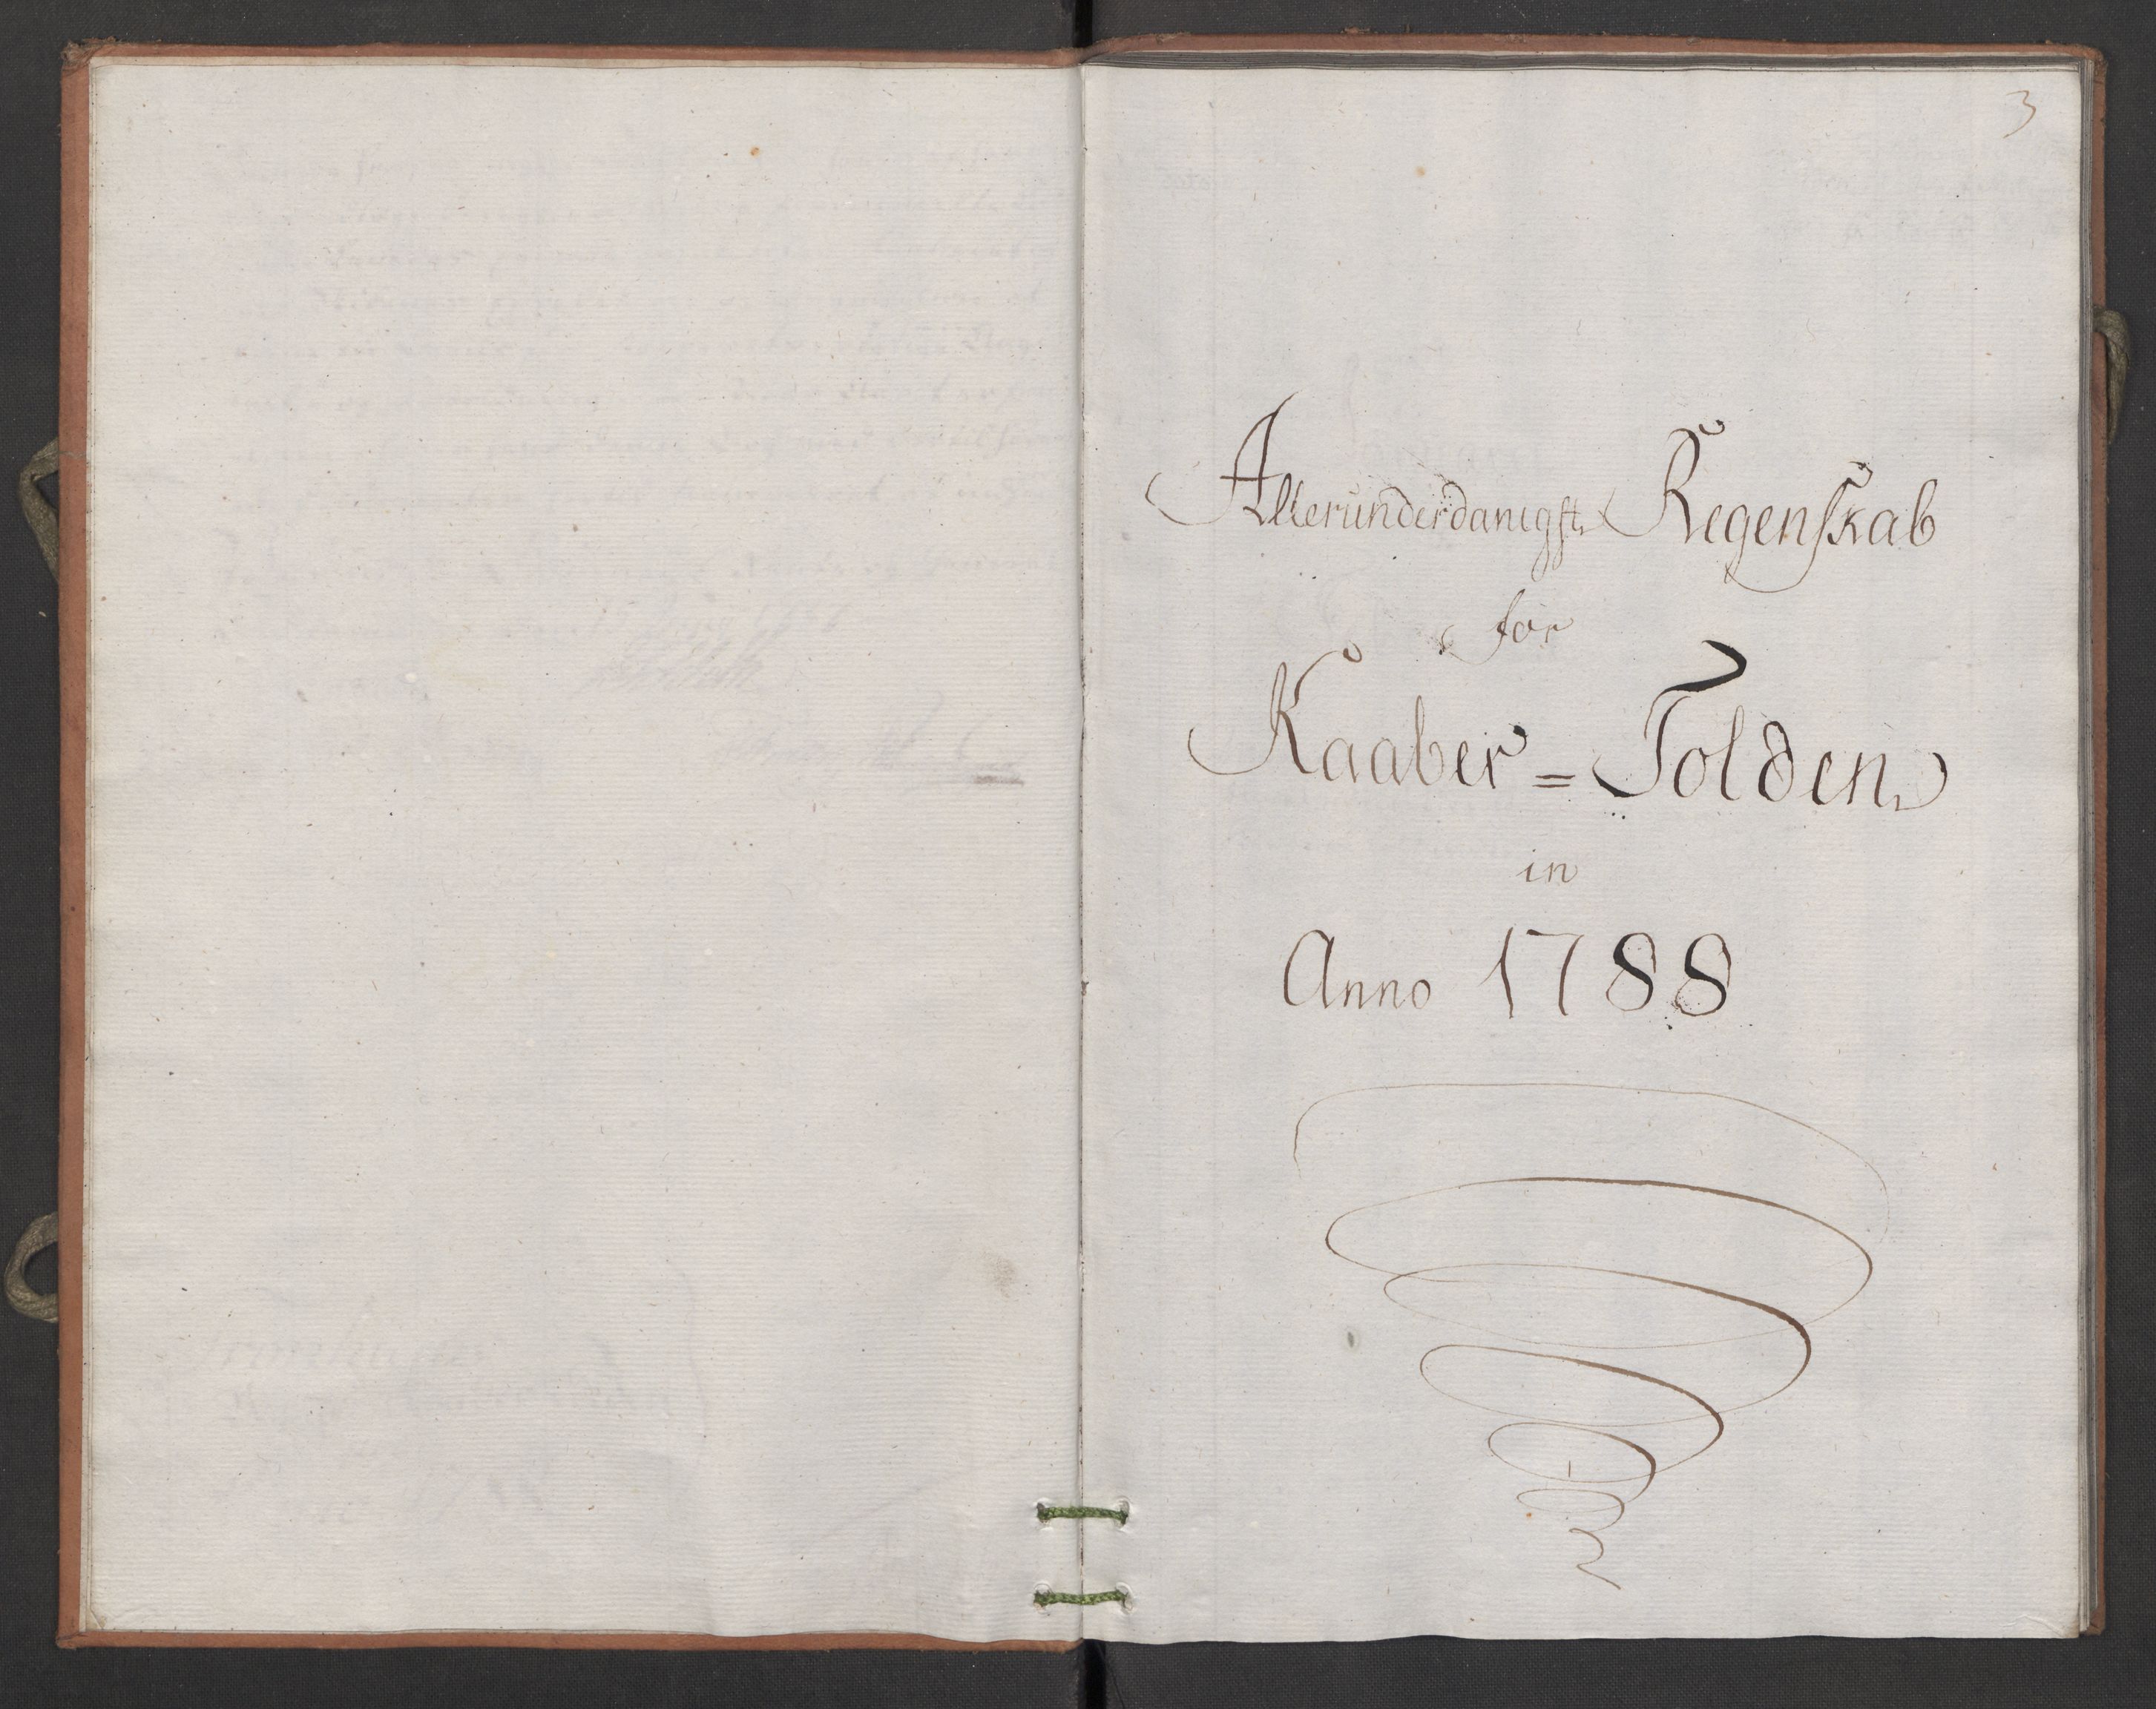 3
Allerunderdanigste Regenskab
for
Kaaber=Tolden
in
Anno 1788